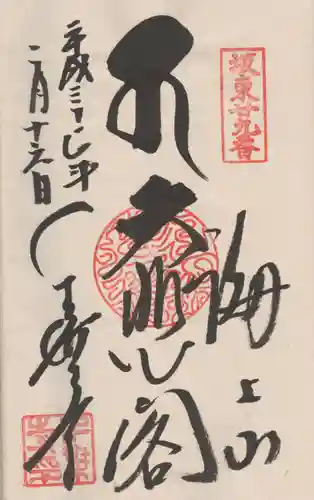 坂東廿九番
海上山
大悲閣
千葉寺
平成三十一年
二月十六日